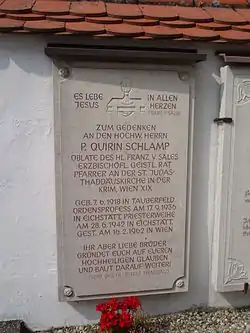 ES LEBE IN ALLEN
JESUS HERZEN
ZUM GEDENKEN
AN DEN HOCHW. HERRN
P. QUIRIN SCHLAMP
OBLATE DES HL. FRANZ V. SALES
ERZBISCHÖFL. GEISTL. RAT
PFARRER AN DER ST. JUDAS-
THADDÄUSKIRCHE IN DER
KRIM, WIEN XIX
GEB. 7.6.1918 IN TAUBERFELD
ORDENSPROFESS AM 17.9.1936
IN EICHSTÄTT, PRIESTERWEIHE
AM 28.6.1942 IN EICHSTÄTT
GEST. AM 18.2.1962 IN WIEN
IHR ABER LIEBE BRÜDER
GRÜNDET EUCH AUF EUEREN
HOCHHEILIGEN GLAUBEN
UND BAUT DARAUF WEITER!